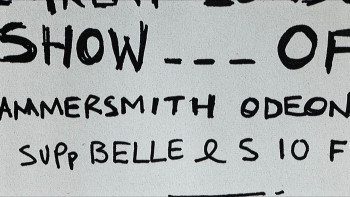 SHOW --- OF
AMMERSMITH ODEON
SUPP BELLE & S 10 F